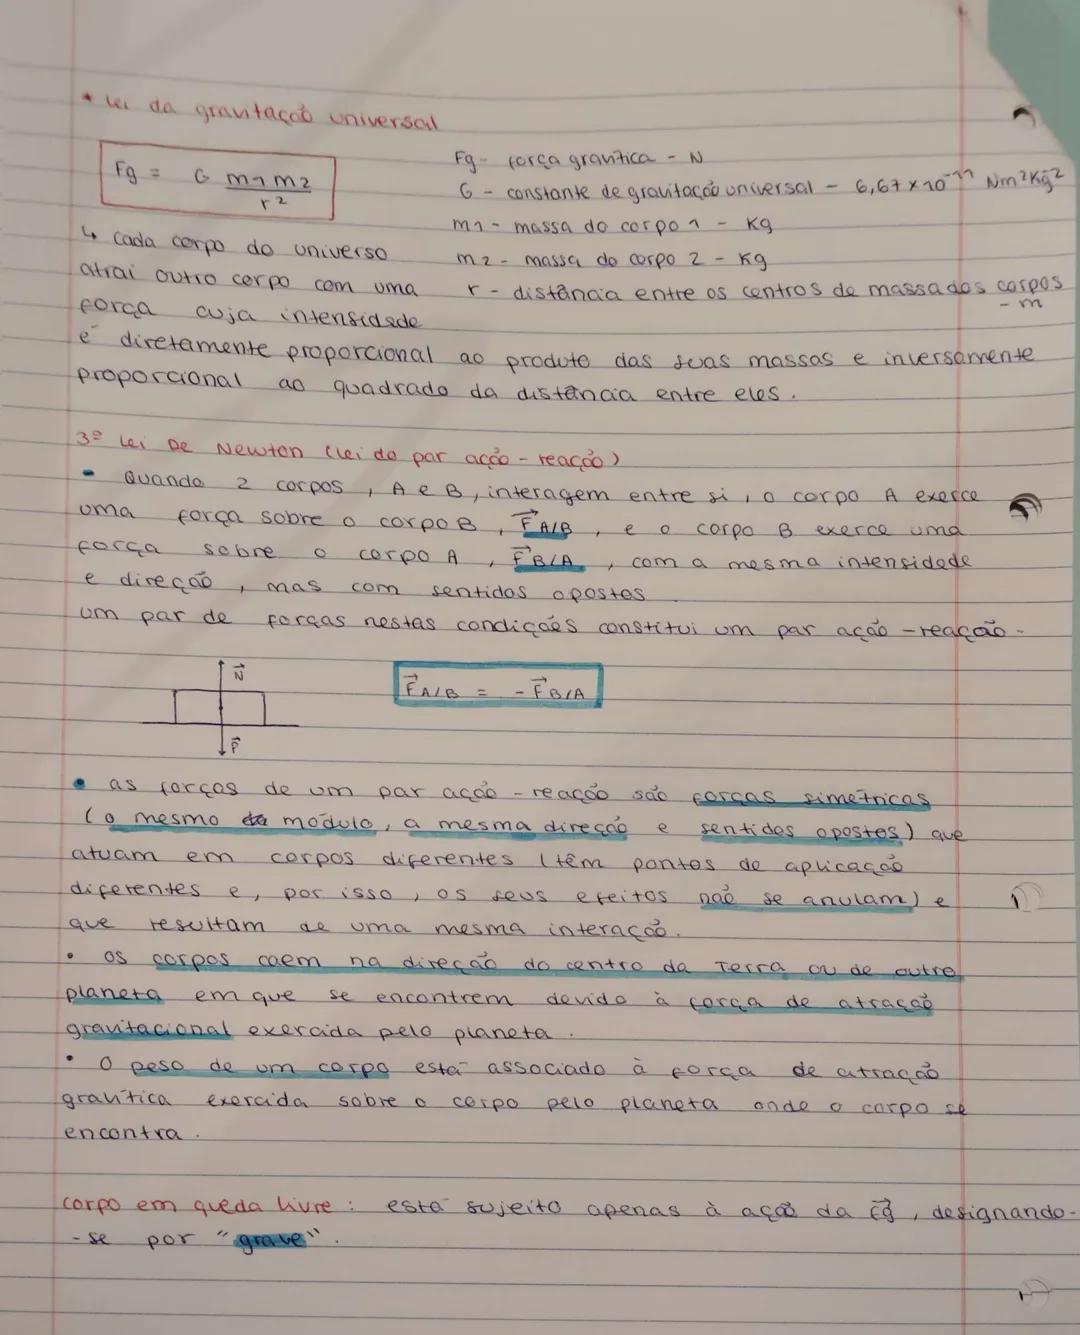 * Lei da gravitação universal
Fg = G m1 m2 / r²
Fg - força gravítica - N
G - constante de gravitação universal - 6,67 x 10⁻¹¹ Nm²Kg⁻²
m1 - massa do corpo 1 - Kg
↳ Cada corpo do universo
m2 - massa do corpo 2 - Kg
atrai outro corpo com uma
r - distância entre os centros de massa dos corpos
- m
força cuja intensidade
é diretamente proporcional ao produto das suas massas e inversamente
proporcional ao quadrado da distância entre eles.
3ª Lei De Newton (lei do par ação - reação)
- Quando 2 corpos, A e B, interagem entre si, o corpo A exerce
uma força sobre o corpo B, F⃗A/B, e o corpo B exerce uma
força sobre o corpo A, F⃗B/A, com a mesma intensidade
e direção, mas com sentidos opostos
um par de forças nestas condições constitui um par ação - reação.
N⃗
F⃗A/B = - F⃗B/A
P⃗
• as forças de um par ação - reação são forças simétricas
(o mesmo módulo, a mesma direção e sentidos opostos) que
atuam em corpos diferentes (têm pontos de aplicação
diferentes e, por isso, os seus efeitos não se anulam) e
que resultam de uma mesma interação.
• os corpos caem na direção do centro da Terra ou de outro
planeta em que se encontrem devido à força de atração
gravitacional exercida pelo planeta.
• O peso de um corpo está associado à força de atração
gravítica exercida sobre o corpo pelo planeta onde o corpo se
encontra.
Corpo em queda livre: está sujeito apenas à ação da F⃗g, designando-
-se por "grave".